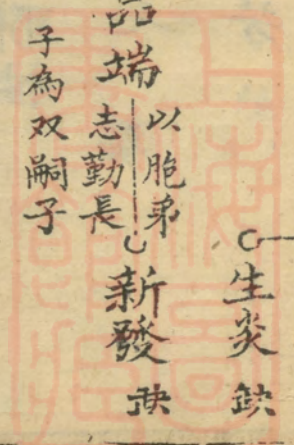 生炎 缺
品端
以胞弟
志勤長
子為双嗣子
新發 缺